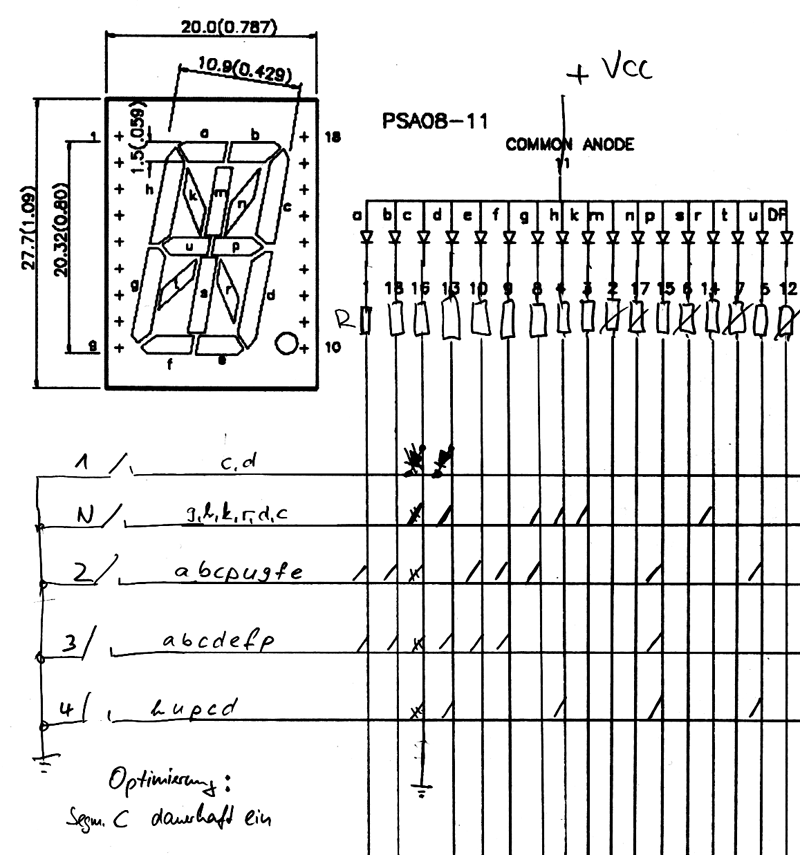 20.0(0.787)
10.9(0.429)
+ VCC
PSA08-11
COMMON ANODE
11
1.5(.059)
27.7(1.09)
20.32(0.80)
1
18
a b
h k m n c
u p
g t s r d
f e
9
10
a b c d e f g h k m n p s r t u DP
1 18 16 13 10 9 8 4 3 2 17 15 6 14 7 5 12
R
1 c,d
N g,h,k,r,d,c
2 abcpugfe
3 abcdefp
4 hupcd
Optimierung:
Segm. C dauerhaft ein